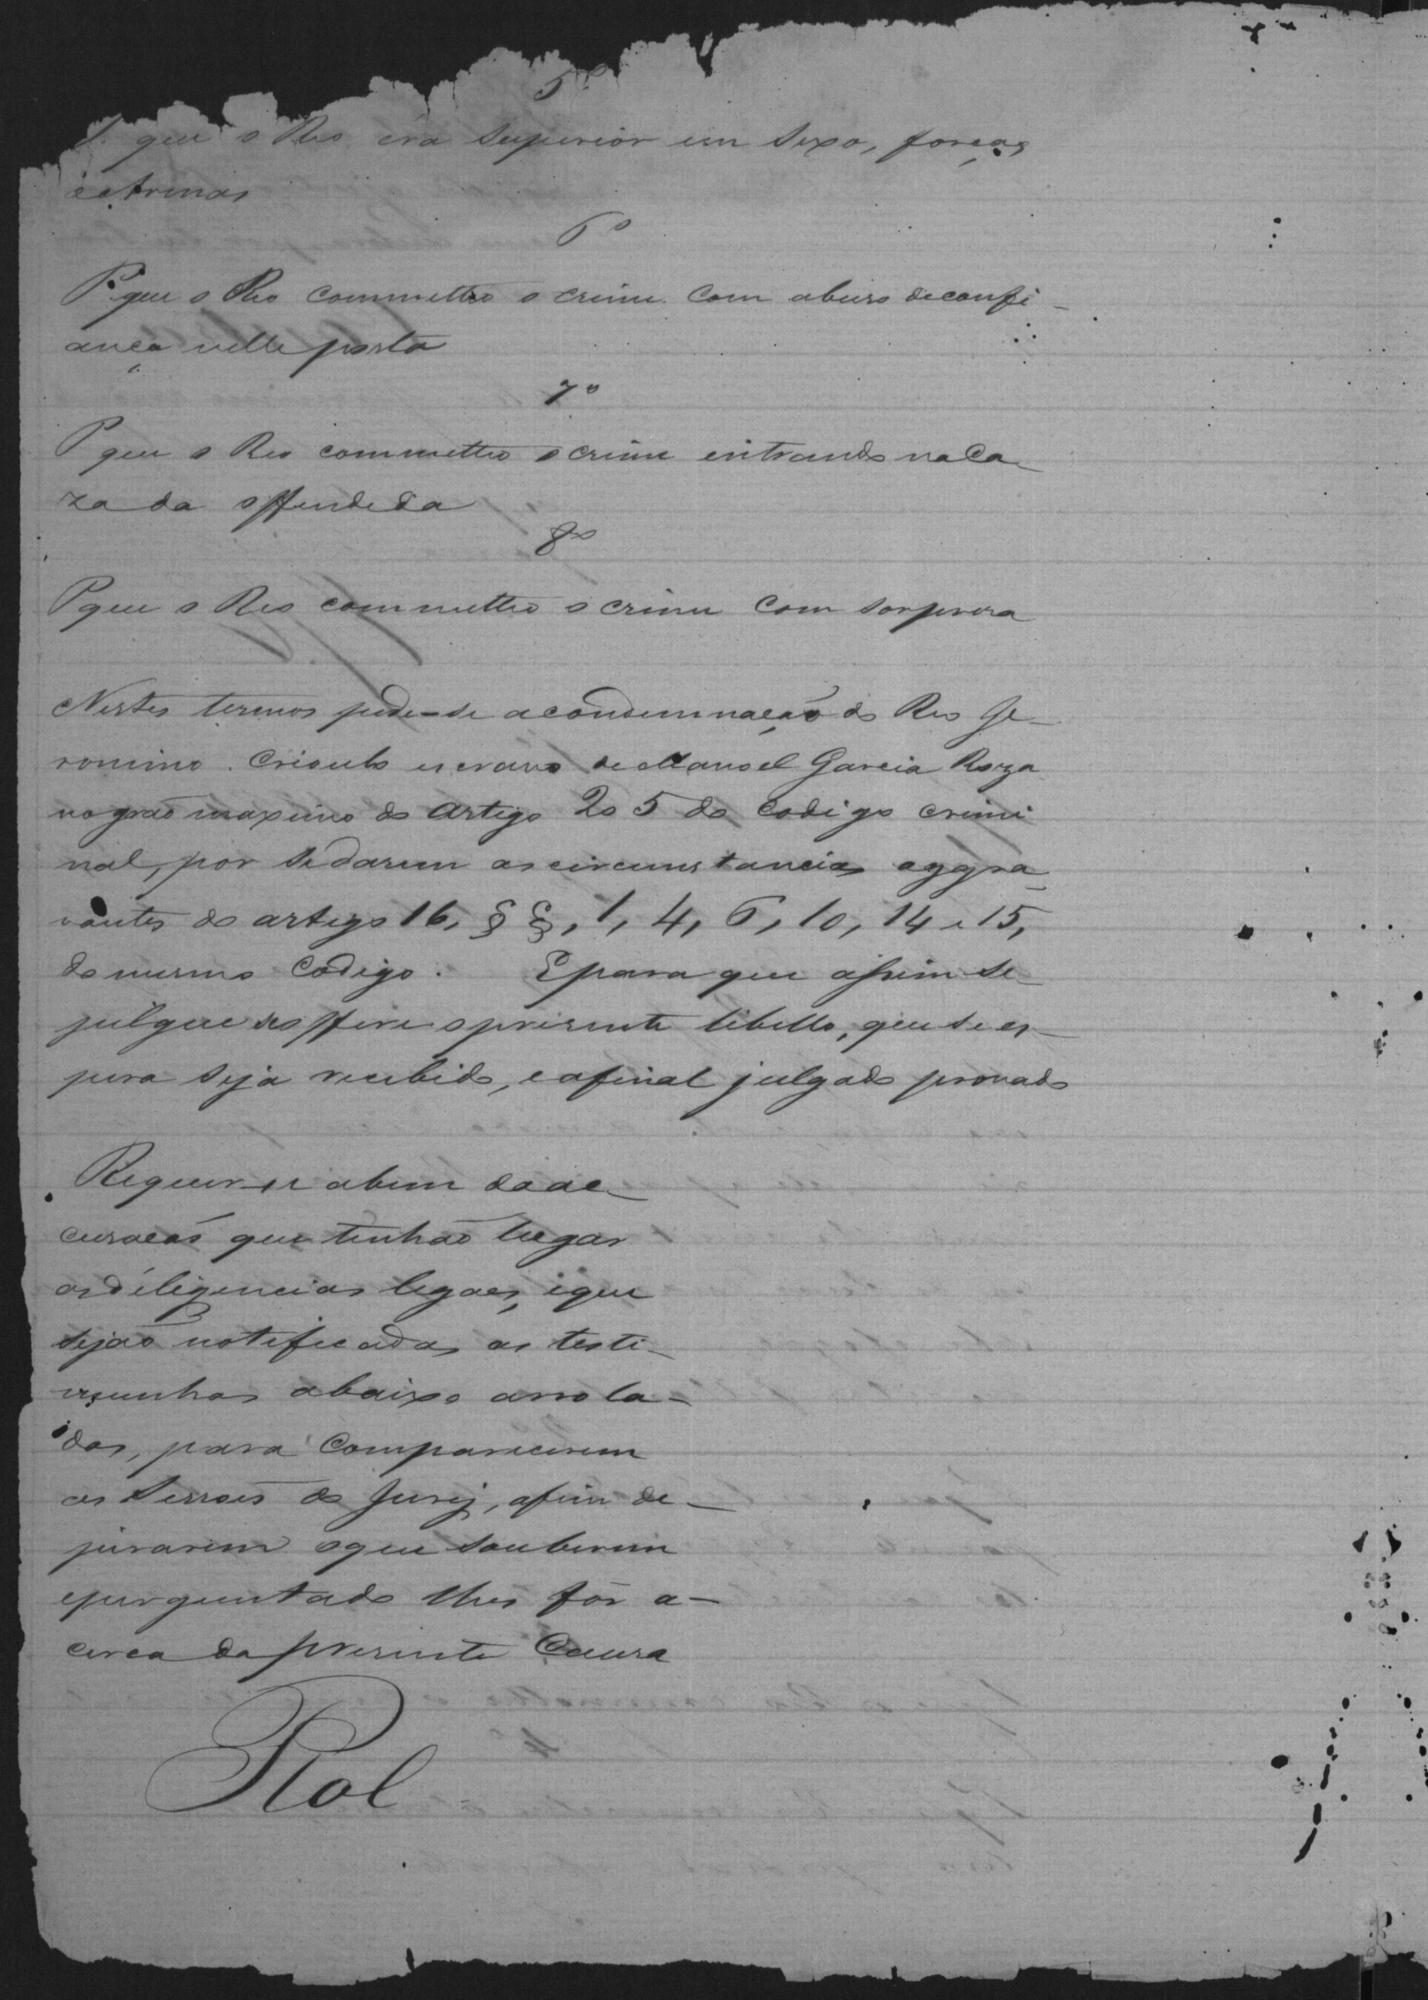 5º
P. que o Reo éra superior em sexo, forças
e armas
6º
P. que o Reo commetteo o crime com abuso de confi-
ança nelle posta
7º
P que o Reo commetteo o crime entrando na ca-
za da offendida
8º
P que o Reo commetteo o crime com sorpreza
Nestes termos pede-se a condemnação do Reo Je-
ronimo Crioulo escravo de Manoel Garcia Roza
no gráo maximo do artigo 205 do codigo crimi
nal, por se darem as circumstancias aggra-
vantes do artigo 16, §§, 1, 4, 6, 10, 14 e 15,
do mesmo codigo. E para que assim se
julgue se offere o presente libello, que se es-
pera seja recebido, e afinal julgado provado
Requer-se a bem da ac-
cusacaõ que tenhaõ lugar
as deligencias legaes, e que
sejaõ notificadas as testi-
munhas abaixo arrola-
das, para comparecerem
as sessoes do Jury, afim de
jurarem o que souberem
e perguntado lhes fôr a-
cerca da presente causa
Rol